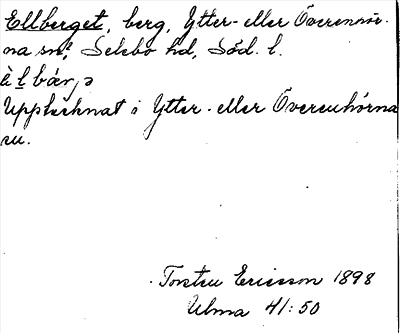 Ellberget, berg, Ytter- eller Överenhör-
na sn, Selebo hd, Söd. l.
Upptecknat i Ytter- eller Överenhörna
sn.
Torsten Ericsson 1898
Ulma 41:50